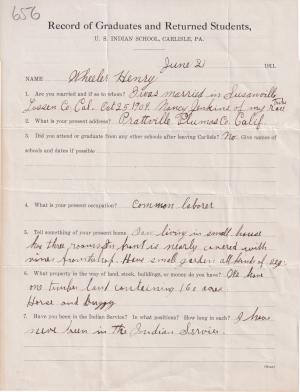 656
Record of Graduates and Returned Students,
U. S. INDIAN SCHOOL, CARLISLE, PA.
June 2 1911.
NAME Wheeler Henry
1. Are you married and if so to whom? I was married in Susanville
Lassen Co. Cal. Oct 25 1909. Nancy Jenkins of my Tribe
2. What is your present address? Prattville Plumas Co. Calif
3. Did you attend or graduate from any other schools after leaving Carlisle? No. Give names
of schools and dates if possible
4. What is your present occupation? Common laborer
5. Tell something of your present home. I am living in small house
has three rooms front is nearly covered with
Have small garden all kinds of veg.
6. What property in the way of land, stock, buildings, or money do you have? We have
one timber land containing 160 acres
Horse and Buggy
7. Have you been in the Indian Service? In what positions? How long in each? I have
never been in the Indian Service.